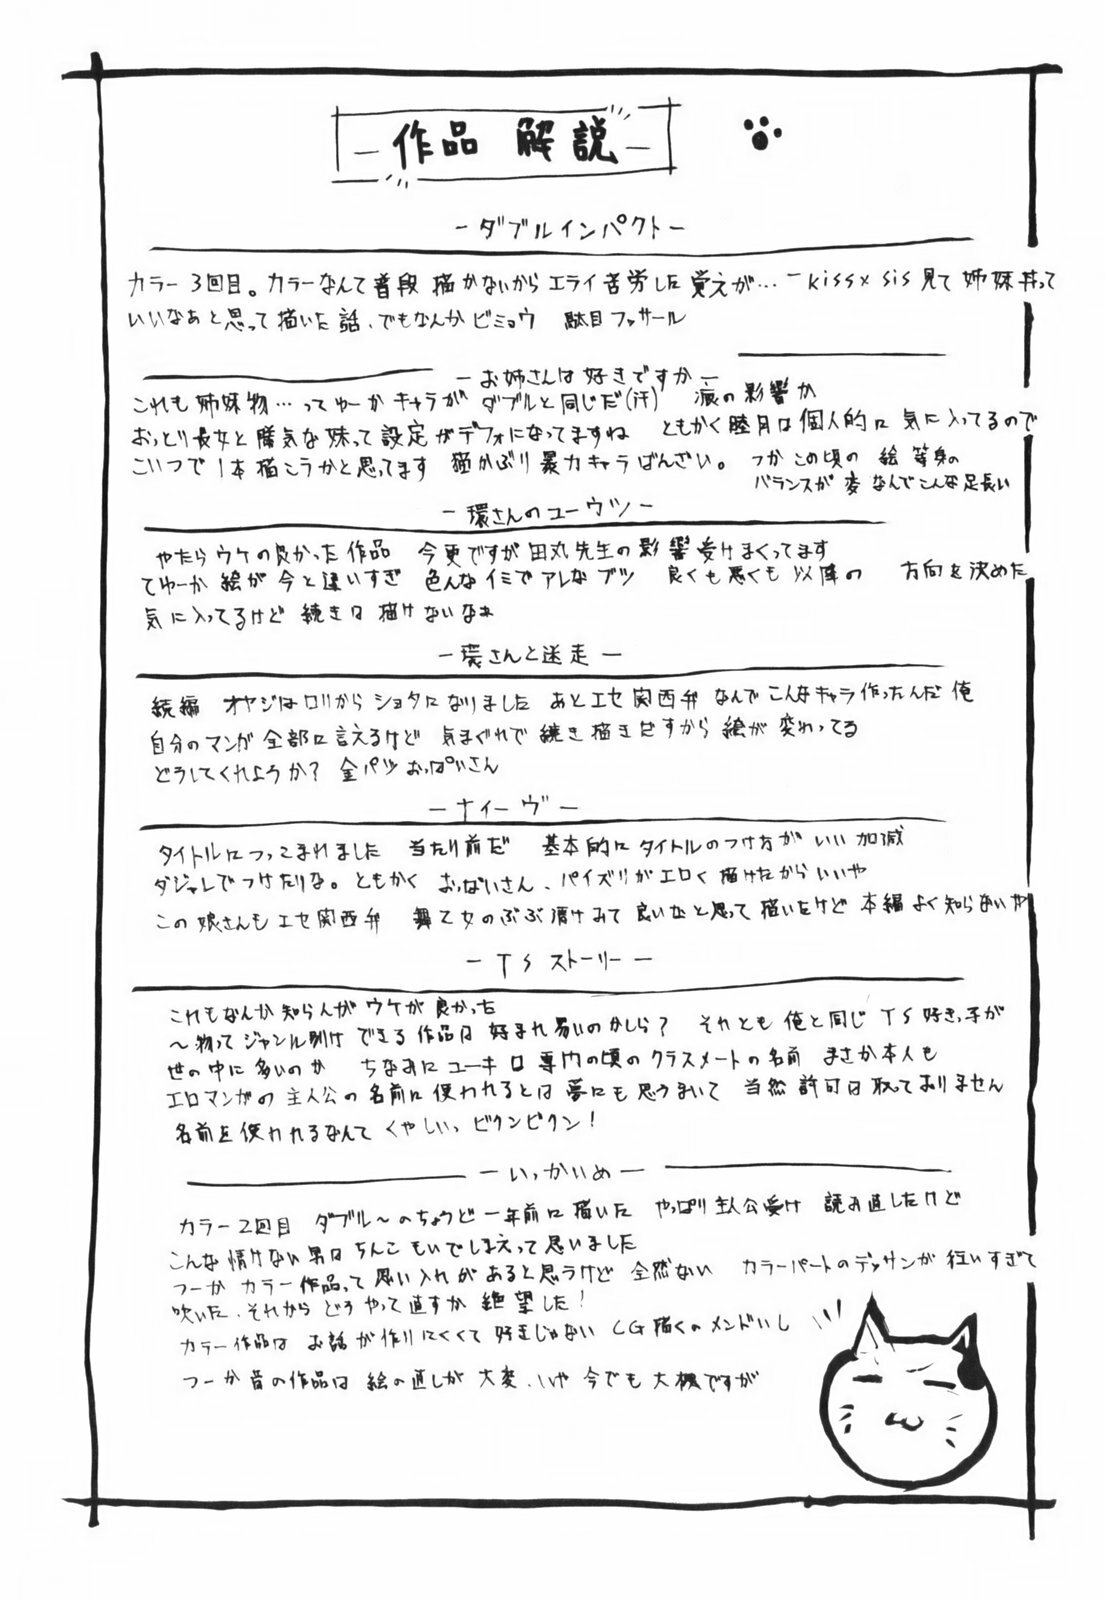 作品 解説
ーダブルインパクトー
カラー3回目。カラーなんて普段描かないからエライ苦労した覚えが… ーkiss×sis見て姉妹丼って
いいなぁと思って描いた話、でもなんかビミョウ 駄目フッサール
ーお姉さんは好きですかー
これも姉妹物…ってゆーかキャラがダブルと同じだ(汗) 痕の影響か
おっとり長女と勝気な妹って設定がデフォになってますね ともかく睦月は個人的に気に入ってるので
こいつで1本描こうかと思ってます 猫かぶり暴力キャラばんざい。 つかこの頃の絵 等身の
バランスが変 なんでこんな足長い
ー環さんのユーウツー
やたらウケの良かった作品 今更ですが田丸先生の影響受けまくってます
てゆーか絵が今と違いすぎ 色んなイミでアレなブツ 良くも悪くも以降の 方向を決めた
気に入ってるけど続きは描けないなぁ
ー環さんと迷走ー
続編 オヤジはロリからショタになりました あとエセ関西弁 なんでこんなキャラ作ったんだ俺
自分のマンガ全部に言えるけど 気まぐれで続き描きだすから絵が変わってる
どうしてくれようか? 金パツおっぱいさん
ーナイーヴー
タイトルにつっこまれました 当たり前だ 基本的にタイトルのつけ方がいい加減
ダジャレでつけたりな。ともかく おっぱいさん、パイズリがエロく描けたからいいや
この娘さんもエセ関西弁 舞乙女のぶぶ漬けみて良いなと思って描いたけど 本編よく知らないや
ーTSストーリーー
これもなんか知らんがウケが良かった
〜物ってジャンル別けできる作品は好まれ易いのかしら? それとも俺と同じTS好きっ子が
世の中に多いのか ちなみにユーキは専門の頃のクラスメートの名前 まさか本人も
エロマンガの主人公の名前に使われるとは夢にも思うまいて 当然許可は取っておりません
名前を使われるなんて くやしいっ ビクンビクン!
ーいっかいめー
カラー2回目 ダブル〜のちょうど一年前に描いた やっぱり主人公受け 読み直したけど
こんな情けない男はちんこもいでしまえって思いました
つーかカラー作品って思い入れがあると思うけど全然ない カラーパートのデッサンが狂いすぎて
吹いた、それからどうやって直すか絶望した!
カラー作品は お話が作りにくくて好きじゃない CG描くのメンドいし
つーか昔の作品は絵の直しが大変、いや今でも大概ですが